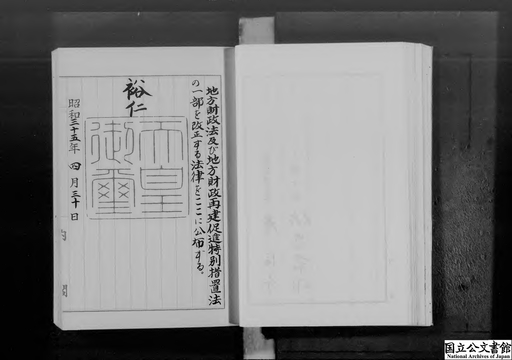 地方財政法及び地方財政再建促進特別措置法
の一部を改正する法律をここに公布する。
裕仁
天皇
御璽
昭和三十五年四月三十日
国立公文書館
National Archives of Japan